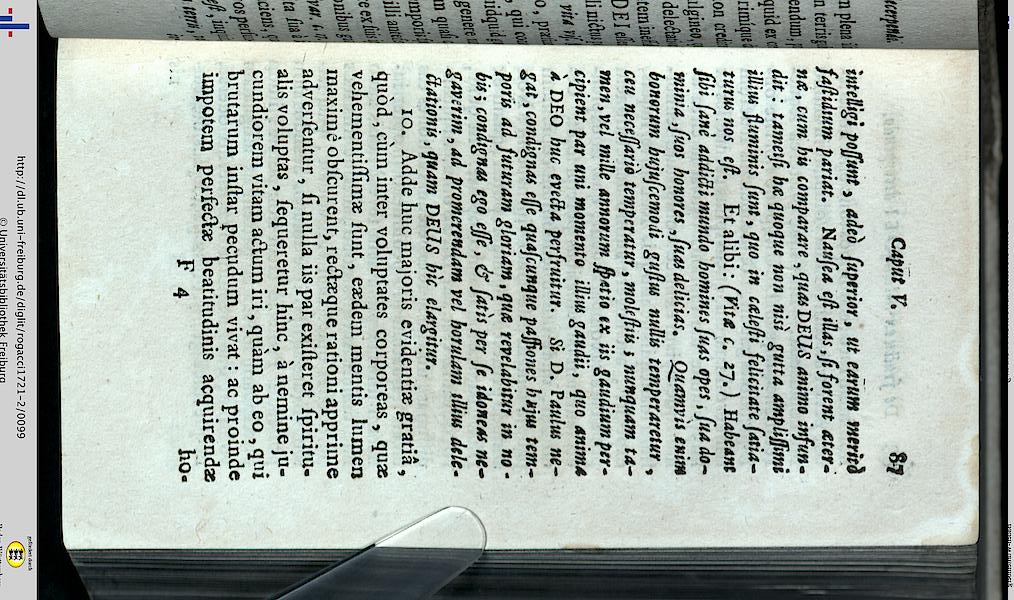 Caput V. 87
intelligi possunt, adeò superior, ut earum meritò
fastidium pariat. Nausea est illas, si forent æter-
næ, cum his comparare, quas DEUS animo infun-
dit: tametsi hæ quoque non nisi gutta amplissimi
illius fluminis sunt, quo in cælesti felicitate satia-
turus nos est. Et alibi: (Vitæ c, 27.) Habeant
sibi sanè addicti mundo homines suas opes, sua do-
minia, suos honores, suas delicias. Quamvis enim
bonorum hujuscemodi gustus nullis temperaretur,
ceu necessariò temperatur, molestiis; nunquam ta-
men, vel mille annorum spatio ex iis gaudium per-
cipient par uni momento illius gaudii, quo anima
à DEO huc evecta perfruitur. Si D. Paulus ne-
gat, condignas esse quascumque passiones hujus tem-
poris, ad futuram gloriam, quæ revelabitur in no-
bis; condignas ego esse, & satis per se idoneas ne-
gaverim, ad promerendam vel horulam illius dele-
ctationis, quam DEUS hîc elargitur.
10. Adde huc majoris evidentiæ gratiâ,
quòd, cùm inter voluptates corporeas, quæ
vehementissimæ sunt, eædem mentis lumen
maximè obscurent, rectæque rationi apprime
adversentur, si nulla iis par existeret spiritu-
alis voluptas, sequeretur hinc, à nemine ju-
cundiorem vitam actum iri, quam ab eo, qui
brutarum instar pecudum vivat: ac proinde
impotem perfectæ beatitudinis acquirendæ
F 4 ho-
http://dl.ub.uni-freiburg.de/diglit/rogacci1721-2/0099
© Universitätsbibliothek Freiburg